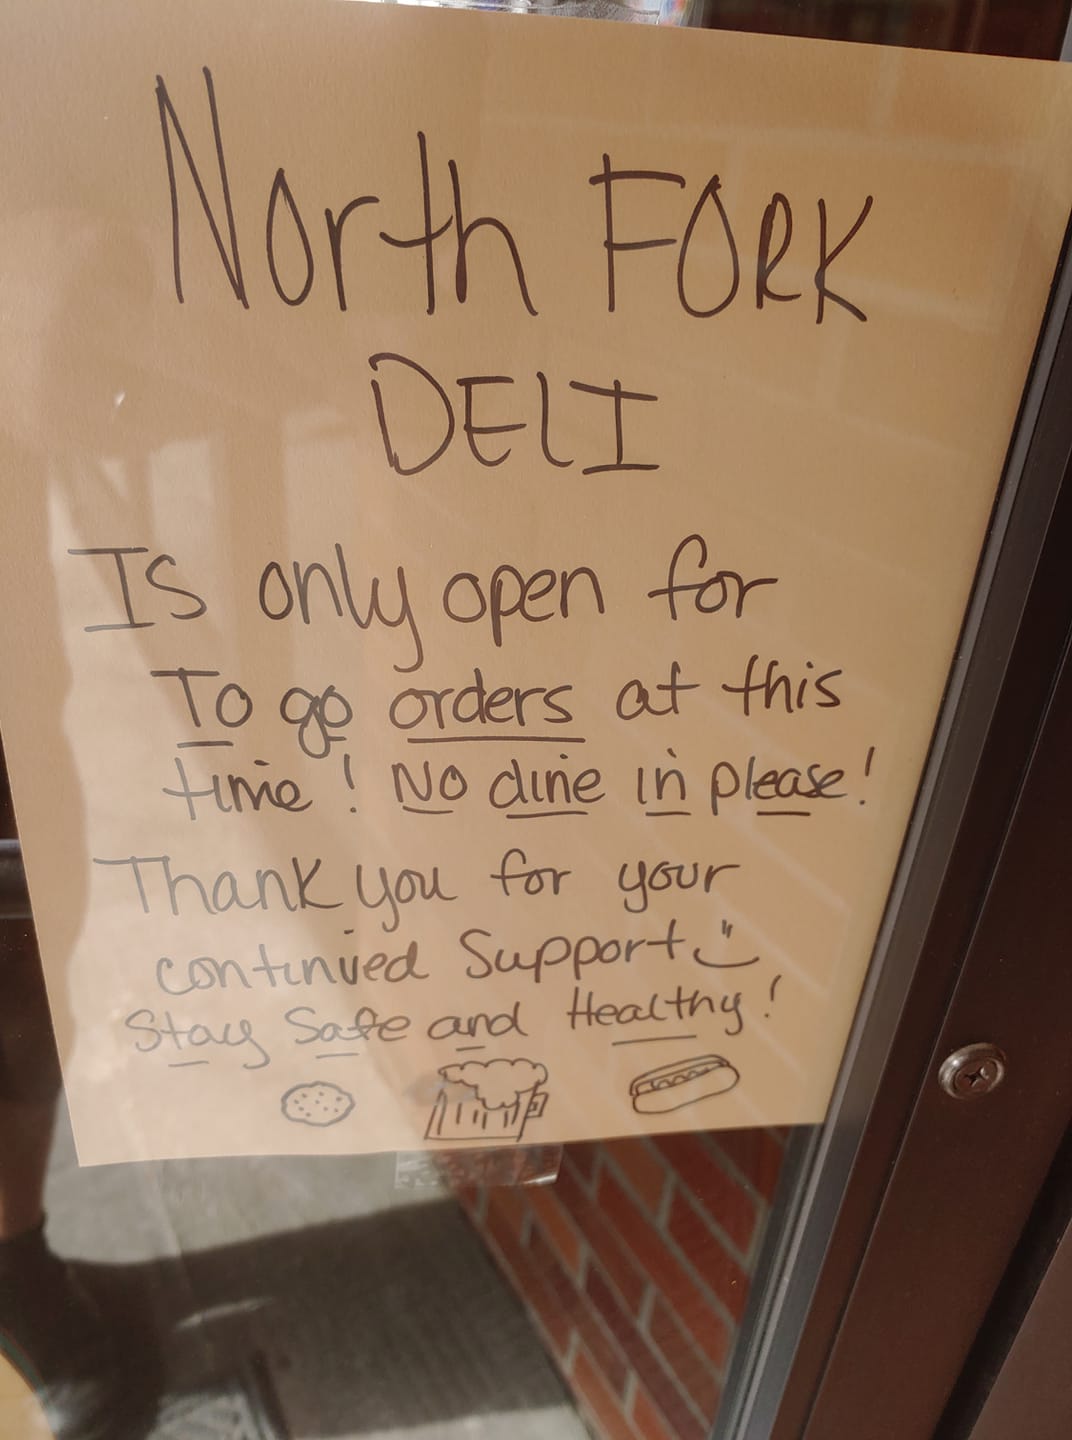 North FORK
DELI
Is only open for
To go orders at this
time! No dine in please!
Thank you for your
continued Support
Stay Safe and Healthy!